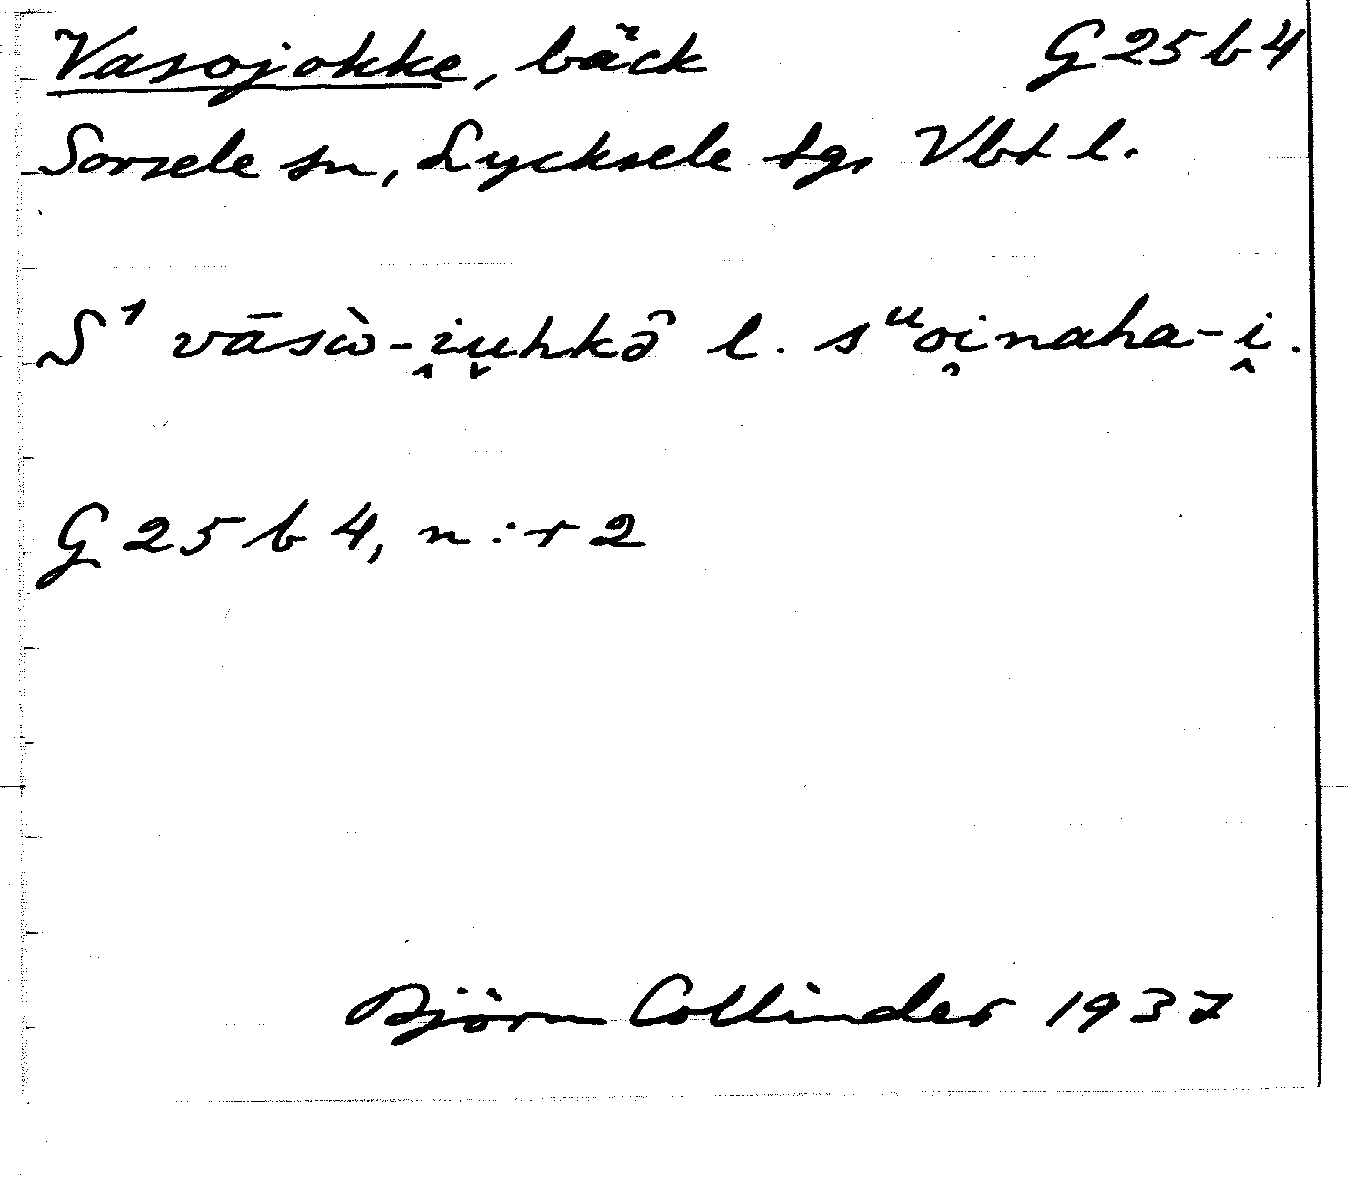 Vasojokke, bäck G25b4
Sorsele sn, Lycksele tg, Vbt l.
S¹ vāsὼ-i̭u̬hkə̂ l. sᵘoi̯naha-i̭.
G 25 b 4, n:r 2
Björn Collinder 1937